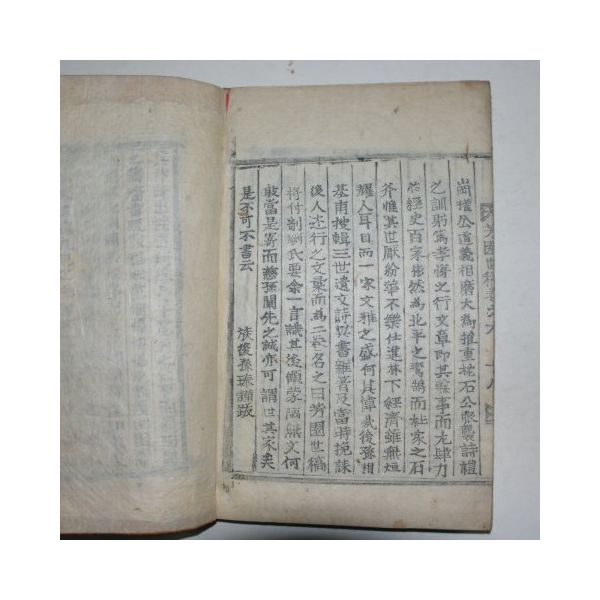 尙權公道義相磨大爲推重枕石公襲詩禮
之訓躬爲孝悌之行文章卽其餘事而尤肆力
於經史百家彬然爲北平之鸞鵠而杜家之石
斧惟其世厭紛華不樂仕進林下經濟雖無烜
耀人耳目而一家文雅之盛何其偉哉後孫相
基甫搜輯三世遺文詩與書雜著及當時挽誄
後人述行之文彙而爲二卷名之曰芳園世稿
將付剞劂氏要余一言識其後傾蒙隔無文何
敢當是寄而慈孫闡先之誠亦可謂世其家矣
是不可不書云
族後孫 謹跋